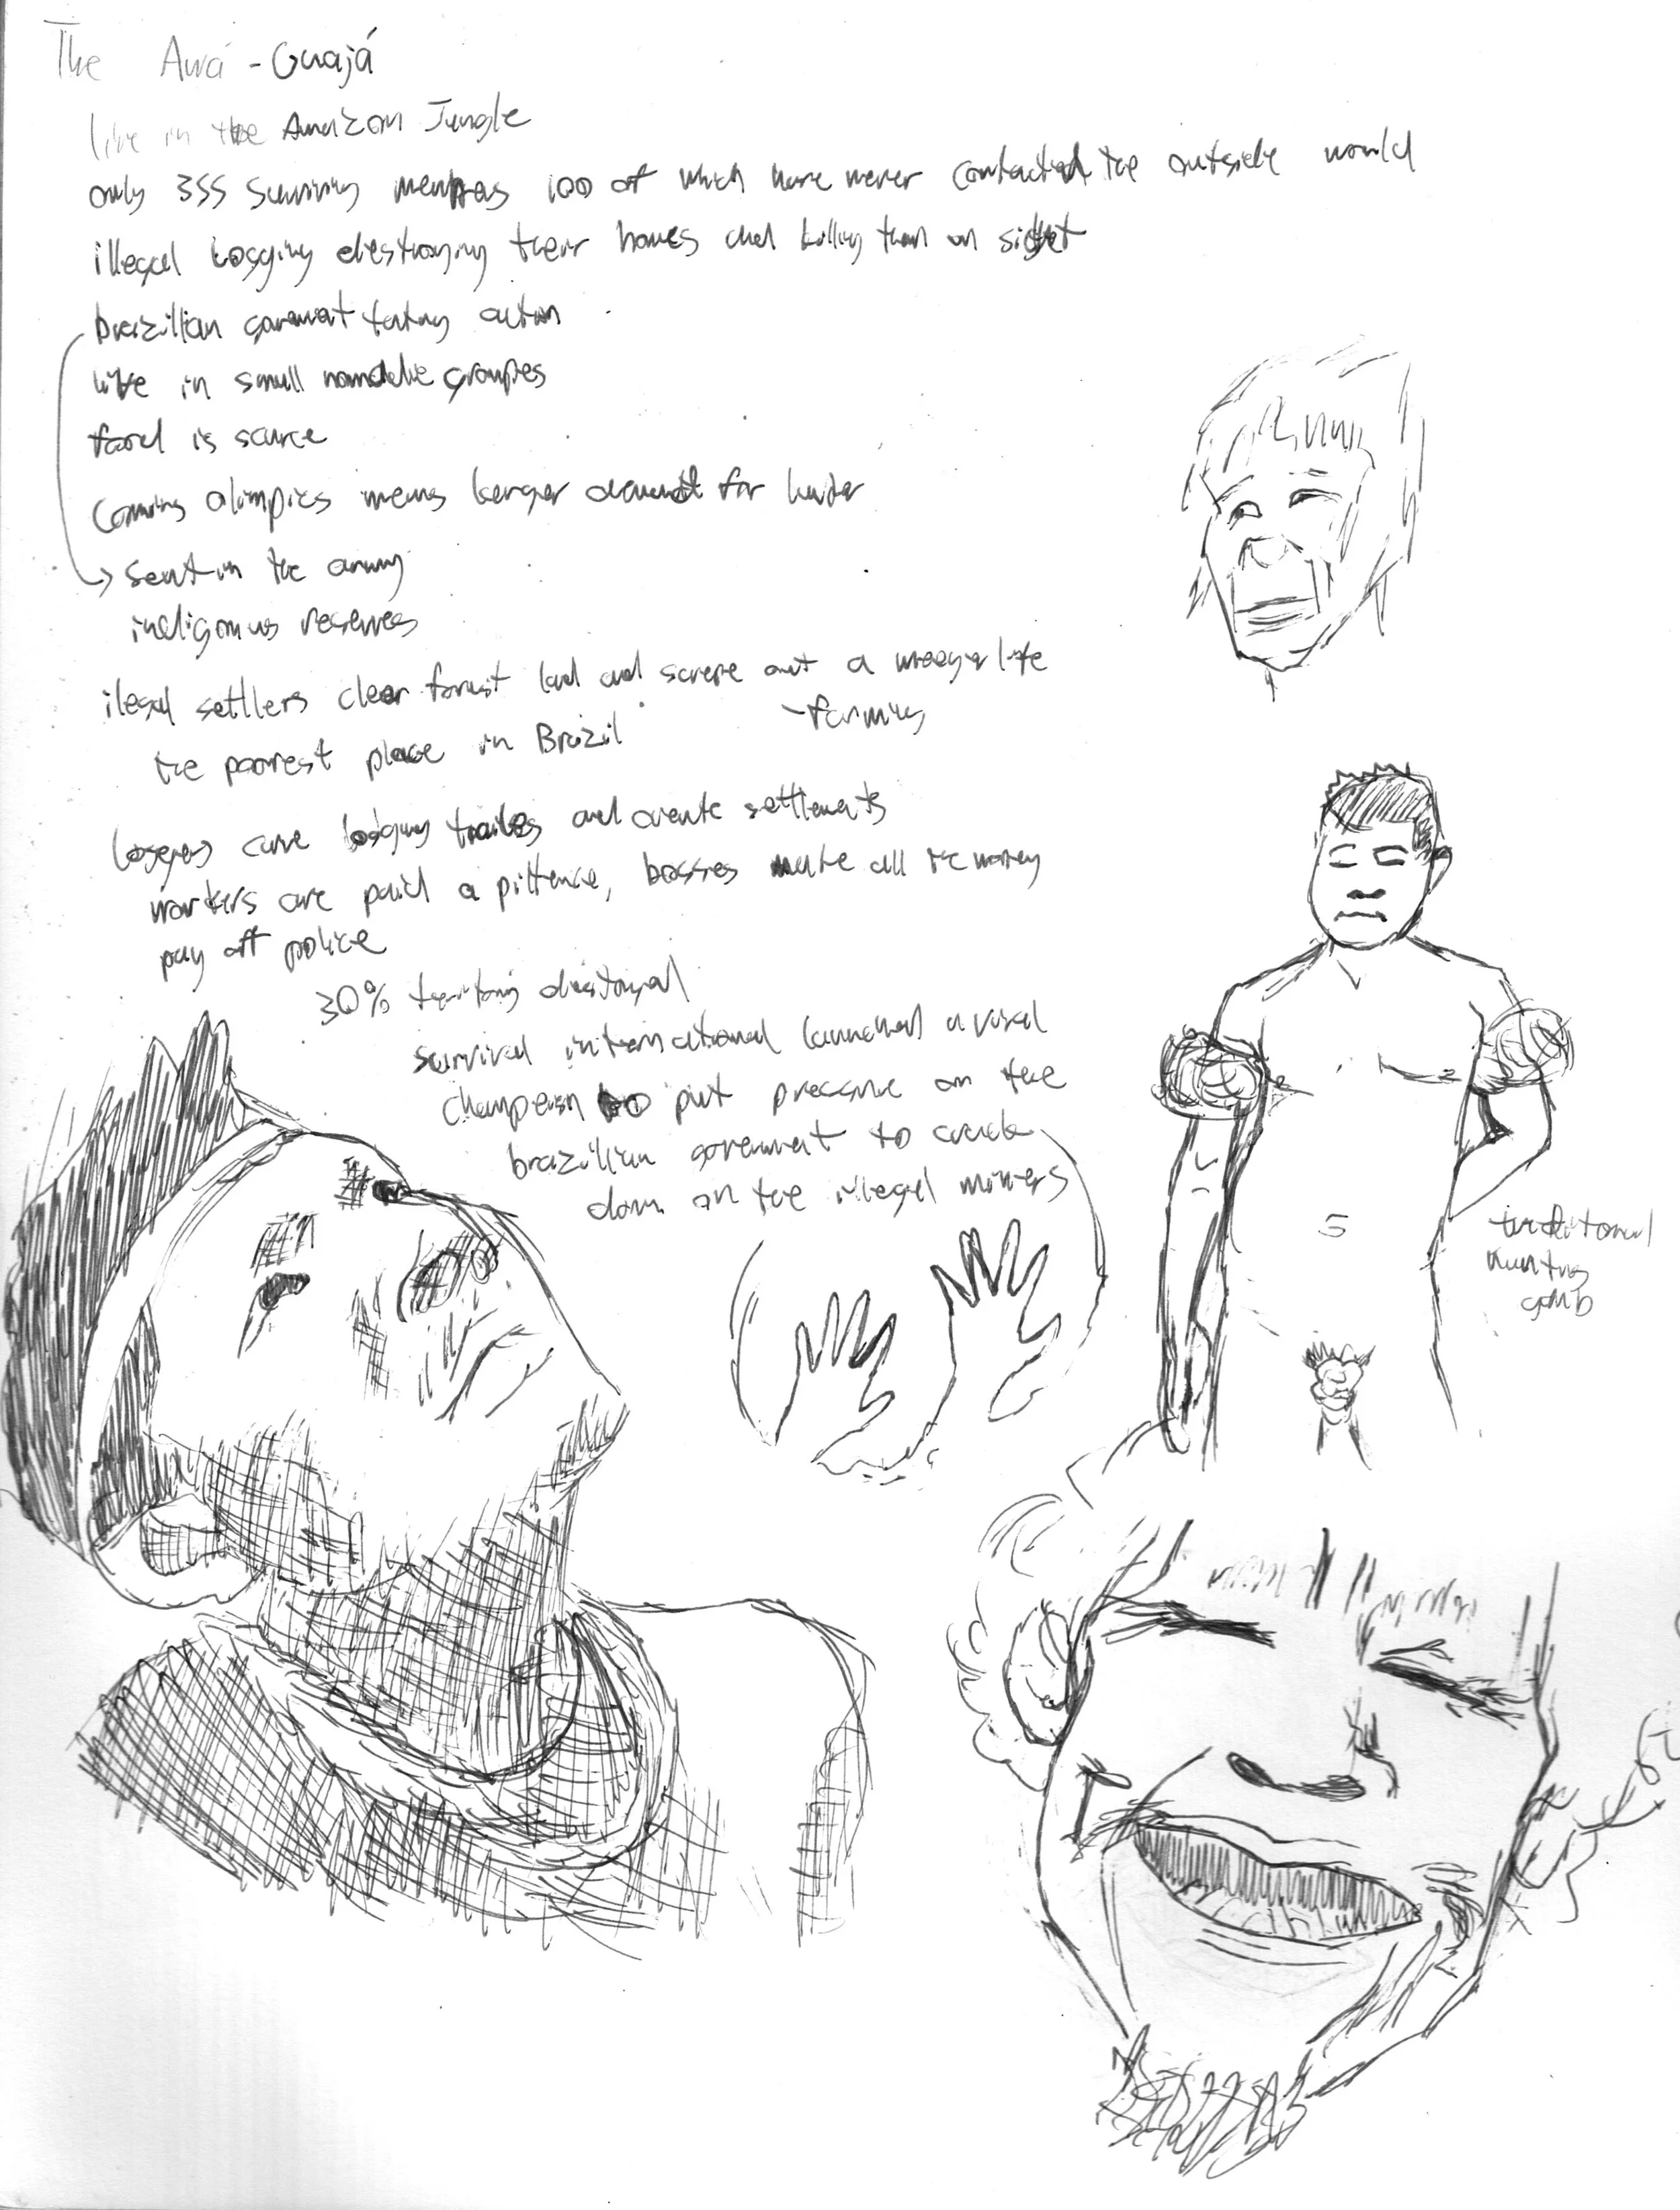 The Awá - Guajá
live in the Amazon Jungle
only 355 surviving members 100 of which have never contacted the outside world
illegal logging destroying their homes and killing them on sight
brazilian goverment taking action
live in small nomadic groupes
food is scarce
Coming olimpics means larger demand for
sent in the army
indigonus reserves
ilegal settlers clear forest land and scrape out a meager life
-farming
the poorest place in Brazil
loggers carve lodging trailes and create settlements
workers are paid a pittence, bosses make all the money
pay off police
30% territory destroyed
survival international launched a viral
champeign to put pressure on the
brazilian goverment to crack
down on the illegal miners
traditional
hunting
garb